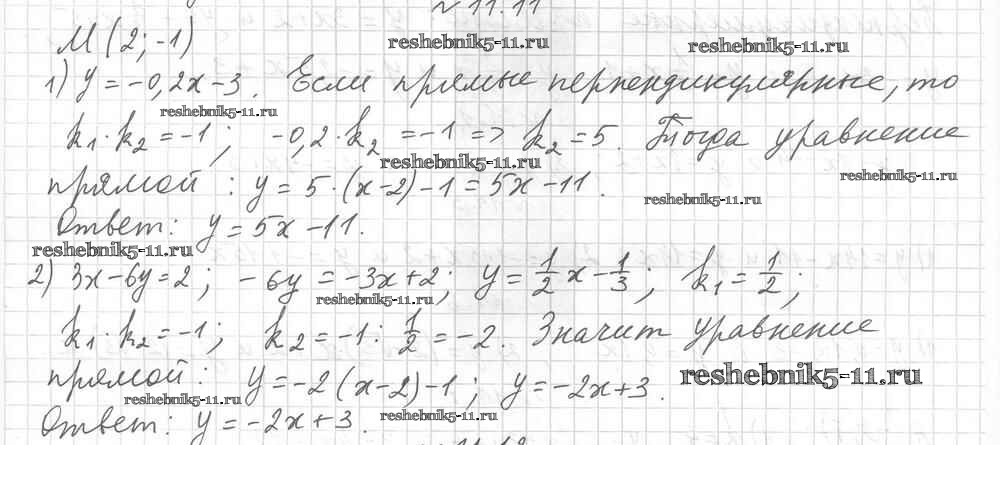 № 11.11
М (2; -1)
1) y = -0,2x - 3. Если прямые перпендикулярные, то
k₁ · k₂ = -1; -0,2 · k₂ = -1 => k₂ = 5. Тогда уравнение
прямой : y = 5 · (x-2) - 1 = 5x - 11.
Ответ: y = 5x - 11.
2) 3x - 6y = 2; -6y = -3x + 2; y = 1/2 x - 1/3; k₁ = 1/2;
k₁ · k₂ = -1; k₂ = -1 : 1/2 = -2. Значит уравнение
прямой: y = -2 (x-2) - 1; y = -2x + 3.
Ответ: y = -2x + 3.
reshebnik5-11.ru
reshebnik5-11.ru
reshebnik5-11.ru
reshebnik5-11.ru
reshebnik5-11.ru
reshebnik5-11.ru
reshebnik5-11.ru
reshebnik5-11.ru
reshebnik5-11.ru
reshebnik5-11.ru
reshebnik5-11.ru